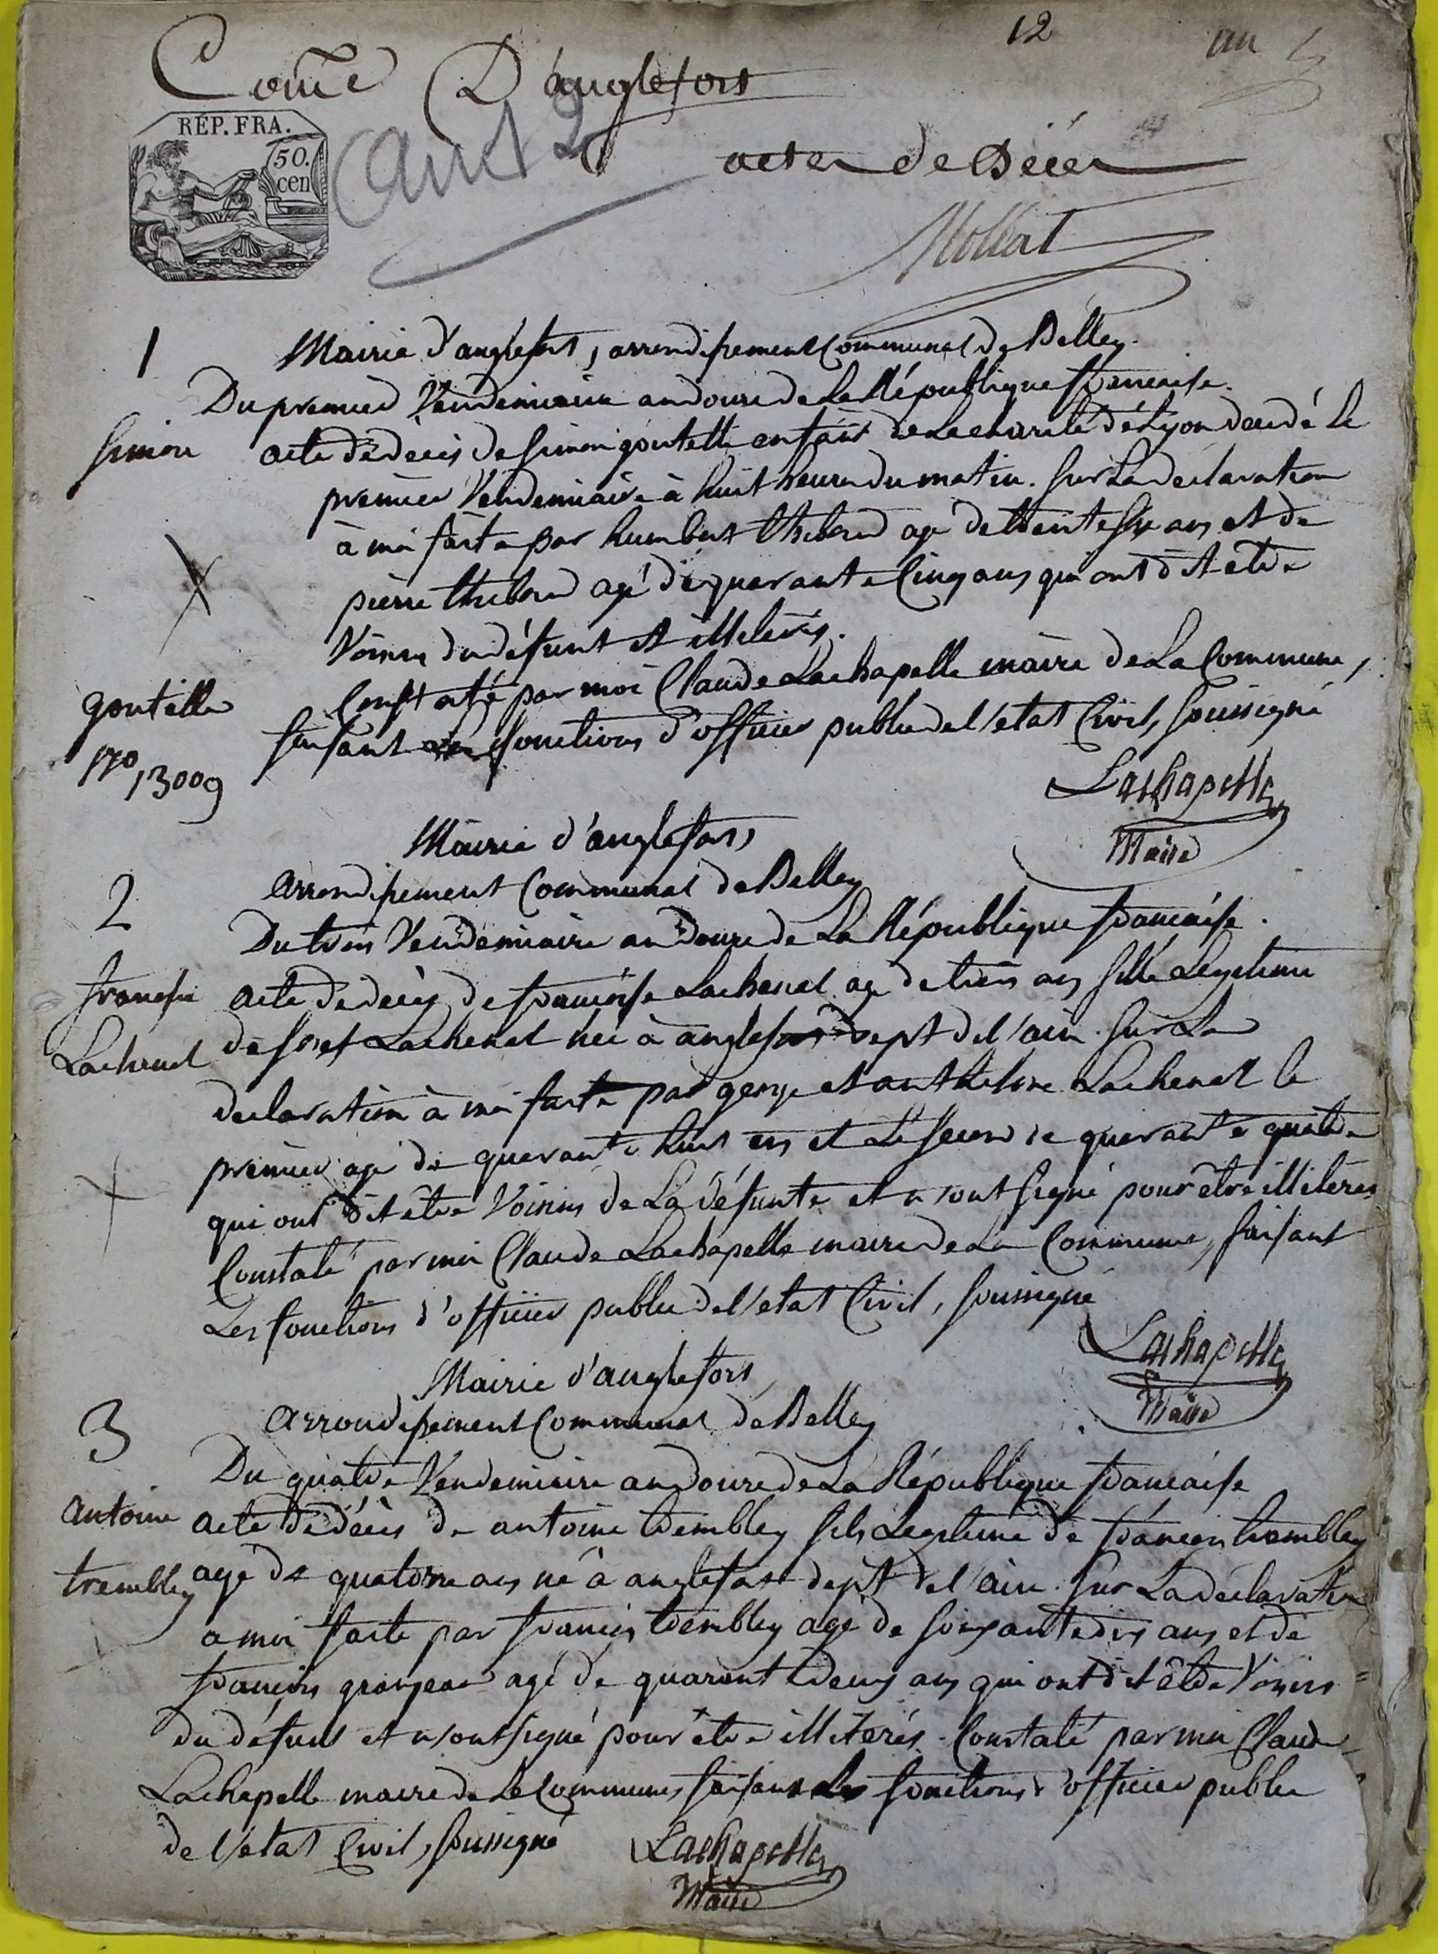 12
an
Com̃e D'anglefort
RÉP. FRA.
50.
cen
an 12
actes de Décès
Mollat
1
Mairie d'anglefort, arrondissement Communal de Belley.
Du premier Vendemiaire an douze de la République francaise.
Simon
acte de décès de Simon goutelle enfant de la charité de Lyon decedé le
premier Vendemiaire à huit heures du matin. Sur la declaration
à moi faite par humbert thiboud agé de trente six ans et de
pierre thiboud agé de quarante Cinq ans qui ont dit etre
Voisins du défunt et illiterés.
goutelle
Constaté par moi Claude Lachapelle maire de La Commune,
faisant les fonctions d'officier public de l'etat Civil, soussigné
n°. 13009
Lachapelle
Maire
Mairie d'anglefort,
2
arrondissement Communal de Belley
Du trois Vendemiaire an douze de La République francaise.
francoise
Lachenal
acte de décès de francoise Lachenal agé de trois ans fille Legitime
de josef Lachenal née à anglefort dept de l'ain. Sur La
declaration à moi faite par george et anthelme Lachenal le
premier agé de quarante huit ans et Le second de quarante quatre
qui ont dit être Voisins de La défunte et n'ont signé pour être illiterés
Constaté par moi Claude Lachapelle maire de La Commune, faisant
Les fonctions d'officier public de l'etat Civil, soussigné
Lachapelle
Maire
Mairie d'anglefort
3
arrondissement Communal de Belley
Du quatre Vendemiaire an douze de La République francaise
antoine
trembley
acte de décès de antoine trembley fils Legitime de francois trembley
agé de quatorze ans né à anglefort dept de l'ain. Sur La déclaration
a moi faite par francois trembley agé de soixante dix ans et de
francois grosjean agé de quarante deux ans qui ont dit être Voisins
du défunt et n'ont signé pour être illiterés. Constaté par moi Claude
Lachapelle maire de La Commune, faisant Les fonctions d'officier public
de l'etat Civil, soussigné
Lachapelle
Maire